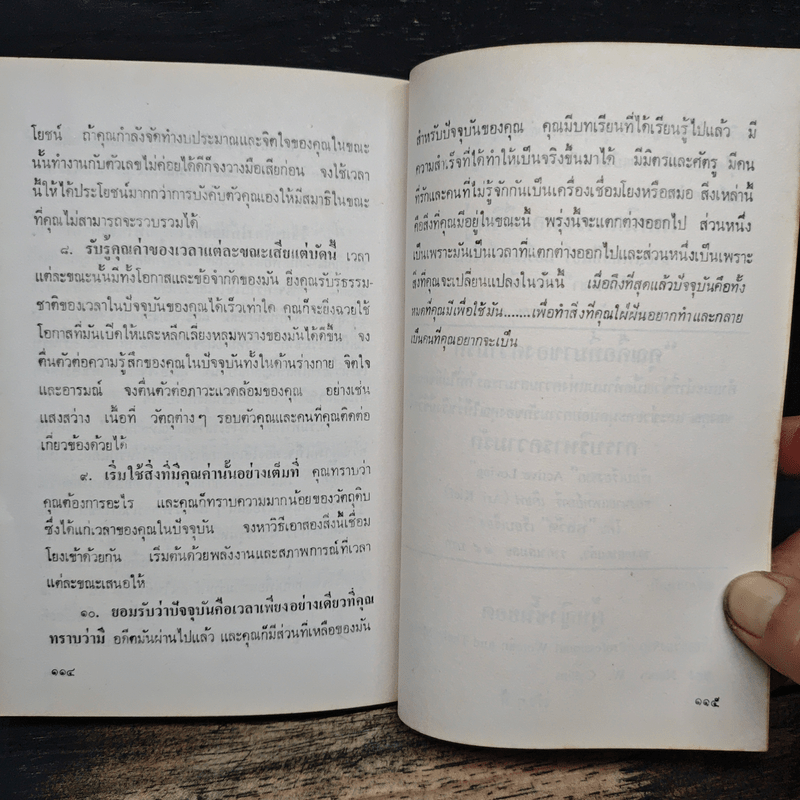 โยชน์ ถ้าคุณกำลังจัดทำงบประมาณและจิตใจของคุณในขณะ
นั้นทำงานกับตัวเลขไม่ค่อยได้ดีก็จงวางมือเสียก่อน จงใช้เวลา
นี้ให้ได้ประโยชน์มากกว่าการบังคับตัวคุณเองให้มีสมาธิในขณะ
ที่คุณไม่สามารถจะรวบรวมได้
๘. รับรู้คุณค่าของเวลาแต่ละขณะเสียแต่บัดนี้ เวลา
แต่ละขณะนั้นมีทั้งโอกาสและข้อจำกัดของมัน ยิ่งคุณรับรู้ธรรม-
ชาติของเวลาในปัจจุบันของคุณได้เร็วเท่าใด คุณก็จะยิ่งฉวยใช้
โอกาสที่มันเปิดให้และหลีกเลี่ยงหลุมพรางของมันได้ดีขึ้น จง
ตื่นตัวต่อความรู้สึกของคุณในปัจจุบันทั้งในด้านร่างกาย จิตใจ
และอารมณ์ จงตื่นตัวต่อภาวะแวดล้อมของคุณ อย่างเช่น
แสงสว่าง เนื้อที่ วัตถุต่างๆ รอบตัวคุณและคนที่คุณติดต่อ
เกี่ยวข้องด้วยได้
๙. เริ่มใช้สิ่งที่มีคุณค่านั้นอย่างเต็มที่ คุณทราบว่า
คุณต้องการอะไร และคุณก็ทราบความมากน้อยของวัตถุดิบ
ซึ่งได้แก่เวลาของคุณในปัจจุบัน จงหาวิธีเอาสองสิ่งนี้เชื่อม
โยงเข้าด้วยกัน เริ่มต้นด้วยพลังงานและสภาพการณ์ที่เวลา
แต่ละขณะเสนอให้
๑๐. ยอมรับว่าปัจจุบันคือเวลาเพียงอย่างเดียวที่คุณ
ทราบว่ามี อดีตมันผ่านไปแล้ว และคุณก็มีส่วนที่เหลือของมัน
๑๑๔
สำหรับปัจจุบันของคุณ คุณมีบทเรียนที่ได้เรียนรู้ไปแล้ว มี
ความสำเร็จที่ได้ทำให้เป็นจริงขึ้นมาได้ มีมิตรและศัตรู มีคน
ที่รักและคนที่ไม่รู้จักกันเป็นเครื่องเชื่อมโยงหรือสมอ สิ่งเหล่านี้
คือสิ่งที่คุณมีอยู่ในขณะนี้ พรุ่งนี้จะแตกต่างออกไป ส่วนหนึ่ง
เป็นเพราะมันเป็นเวลาที่แตกต่างออกไปและส่วนหนึ่งเป็นเพราะ
สิ่งที่คุณจะเปลี่ยนแปลงในวันนี้ เมื่อถึงที่สุดแล้วปัจจุบันคือทั้ง
หมดที่คุณมีเพื่อใช้มัน.......เพื่อทำสิ่งที่คุณใฝ่ฝันอยากทำและกลาย
เป็นคนที่คุณอยากจะเป็น
๑๑๕